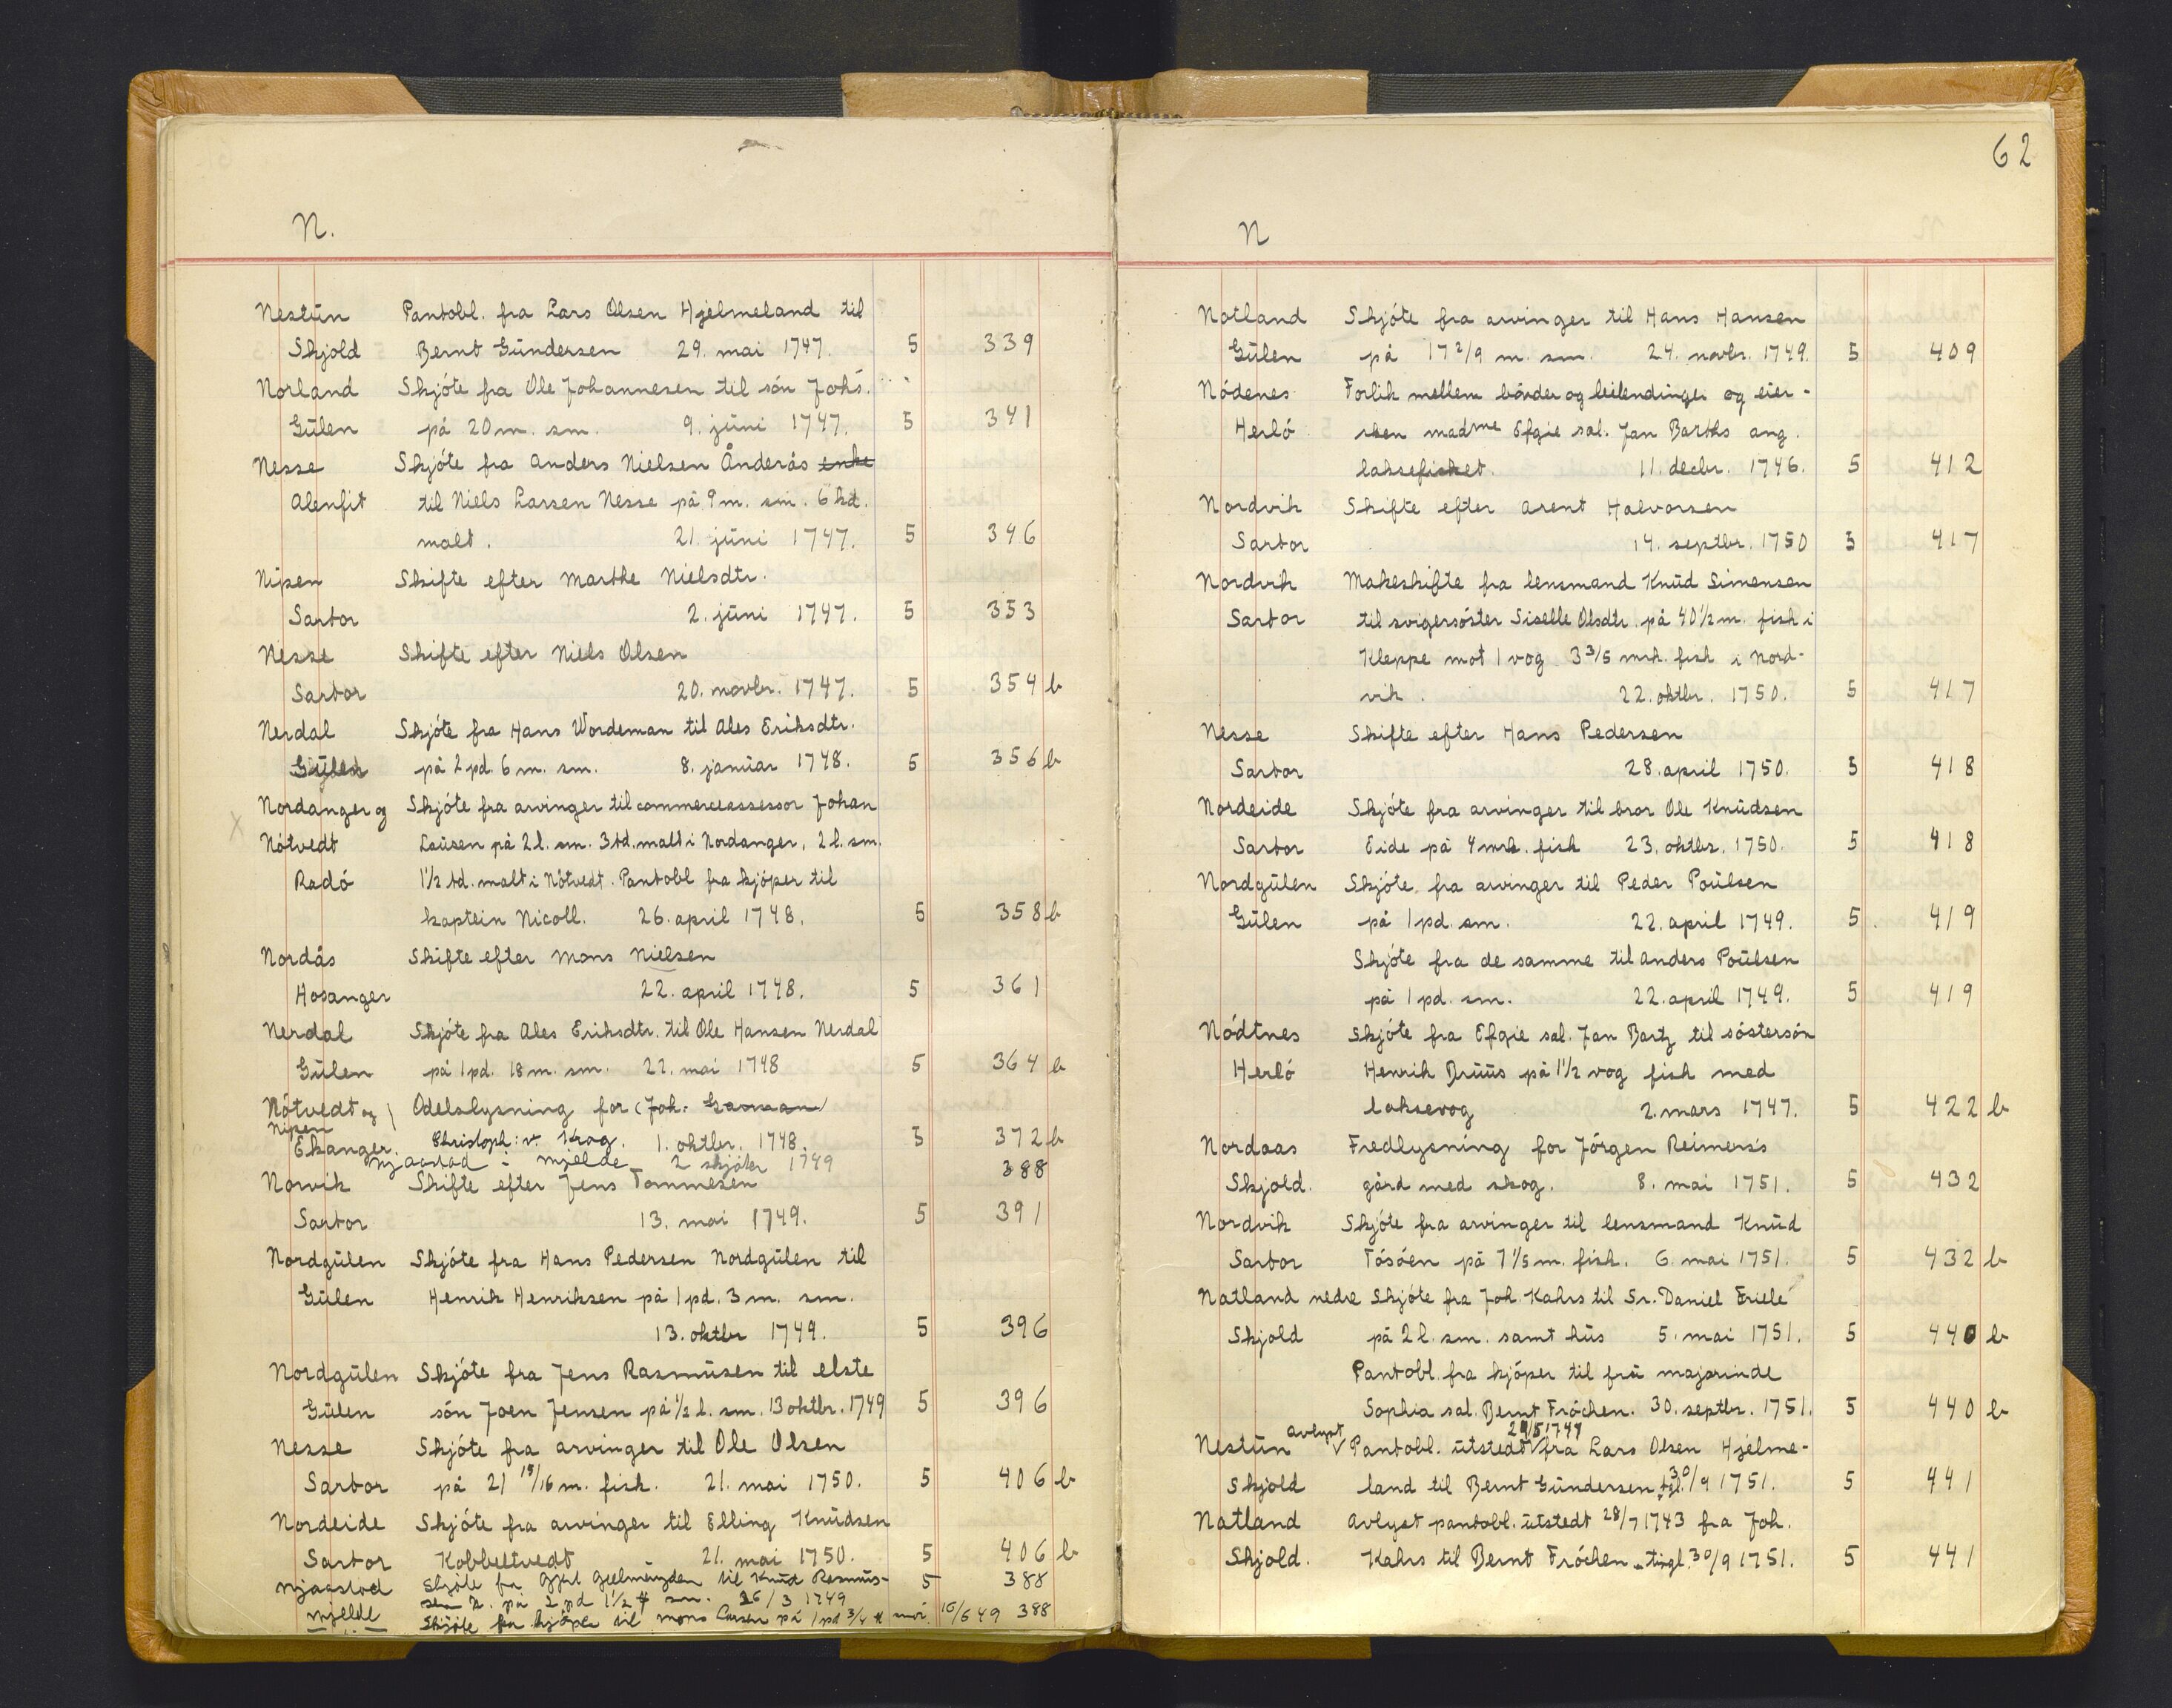 N.
Nestün Pantobl. fra Lars Olsen Hjelmeland til
Skjold Bernt Gündersen 29. mai 1747. 5 339
Norland Skjóte fra Ole Johannesen til són Johs.
Gülen på 20 m. sm. 9. jüni 1747. 5 341
Nesse Skjóte fra Anders Nielsen Ånderås enke
Alenfit til Niels Larsen Nesse på 9 m. sm. 6 kd.
malt. 21. jüni 1747. 5 346
Nipen Skifte efter Marthe Nielsdtr.
Sartor 2. jüni 1747. 5 353
Nesse Skifte efter Niels Olsen
Sartor 20. novbr. 1747. 5 354 b
Nerdal Skjóte fra Hans Wordeman til Ales Eriksdtr.
Gülen på 2 pd. 6 m. sm. 8. janüar 1748. 5 356 b
Nordanger og Skjóte fra arvinger til commerceassessor Johan
X Nótvedt Laüsen på 2 l. sm. 3 td. malt i Nordanger, 2 l. sm.
Radó 1½ td. malt i Nótvedt. Pantobl fra kjóper til
kaptein Nicoll. 26. april 1748. 5 358 b
Nordås Skifte efter Mons Nielsen
Hosanger 22. april 1748. 5 361
Nerdal Skjóte fra Ales Eriksdtr. til Ole Hansen Nerdal
Gülen på 1 pd. 18 m. sm. 22. mai 1748 5 364 b
Nótvedt og Odelslysning for (Joh. Garman)
Nipen
Ekanger. Christoph: v. Krog. 1. oktbr. 1748. 5 372 b
Njaastad i Mjelde 2 skjóter 1749 388
Norvik Skifte efter Jens Tommesen
Sartor 13. mai 1749. 5 391
Nordgülen Skjóte fra Hans Pedersen Nordgülen til
Gülen Henrik Henriksen på 1 pd. 3 m. sm.
13. oktbr 1749. 5 396
Nordgülen Skjóte fra Jens Rasmüsen til elste
Gülen són Joen Jensen på ½ l. sm. 13 oktbr. 1749 5 396
Nesse Skjóte fra arvinger til Ole Olsen
Sartor på 21 15/16 m. fisk. 21. mai 1750. 5 406 b
Nordeide Skjóte fra arvinger til Elling Knüdsen
Sartor Kobbeltvedt 21. mai 1750. 5 406 b
Njaastad Skjóte fra Gjert Geelmuyden til Knüd Rasmüs- 5 388
sen N. på 2 pd 1½ sm. 26/3 1749
Mjelde Skjóte fra kjóper til Mons Larsen på 1 pd ¾ 16/6 49 388
62
N
Natland Skjóte fra arvinger til Hans Hansen
Gülen på 17 2/9 m. sm. 24. novbr. 1749. 5 409
Nódenes Forlik mellem bónder og leilendinger og eier-
Herló sken madme Efgie sal. Jan Barths ang.
laksefisket. 11. decbr. 1746. 5 412
Nordvik Skifte efter Arent Halvorsen
Sartor 14. septbr. 1750 5 417
Nordvik Makeskifte fra lensmand Knüd Simensen
Sartor til svigersóster Siselle Olsdtr. på 40½ m. fisk i
Kleppe mot 1 vog 3 3/5 mrk. fisk i Nord-
vik. 22. oktbr. 1750. 5 417
Nesse Skifte efter Hans Pedersen
Sartor 28. april 1750. 5 418
Nordeide Skjóte fra arvinger til bror Ole Knüdsen
Sartor Eide på 4 mrk. fisk 23. oktbr. 1750. 5 418
Nordgülen Skjóte fra arvinger til Peder Poülsen
Gülen på 1 pd. sm. 22. april 1749. 5 419
Skjóte fra de samme til Anders Poülsen
på 1 pd. sm. 22. april 1749. 5 419
Nódtnes Skjóte fra Efgie sal. Jan Bartz til sóstersón
Herló Henrik Brüüs på 1½ vog fisk med
laksevog 2. mars 1747. 5 422 b
Nordaas Fredlysning for Jórgen Reimers's
Skjold. gård med skog. 8. mai 1751. 5 432
Nordvik Skjóte fra arvinger til lensmand Knüd
Sartor Tósóen på 7 1/5 m. fisk. 6. mai 1751. 5 432 b
Natland nedre Skjóte fra Joh. Kahrs til Sr. Daniel Friele
Skjold på 2 l. sm. samt hüs 5. mai 1751. 5 440 b
Pantobl. fra kjóper til frü majorinde
Sophia sal. Bernt Fróchen. 30. septbr. 1751. 5 440 b
avlyst 29/5 1747
Nestün Pantobl. ütstedt fra Lars Olsen Hjelme-
Skjold land til Bernt Gündersen tgl. 30/9 1751. 5 441
Natland Avlyst pantobl. ütstedt 28/7 1743 fra Joh.
Skjold. Kahrs til Bernt Fróchen tingl. 30/9 1751. 5 441